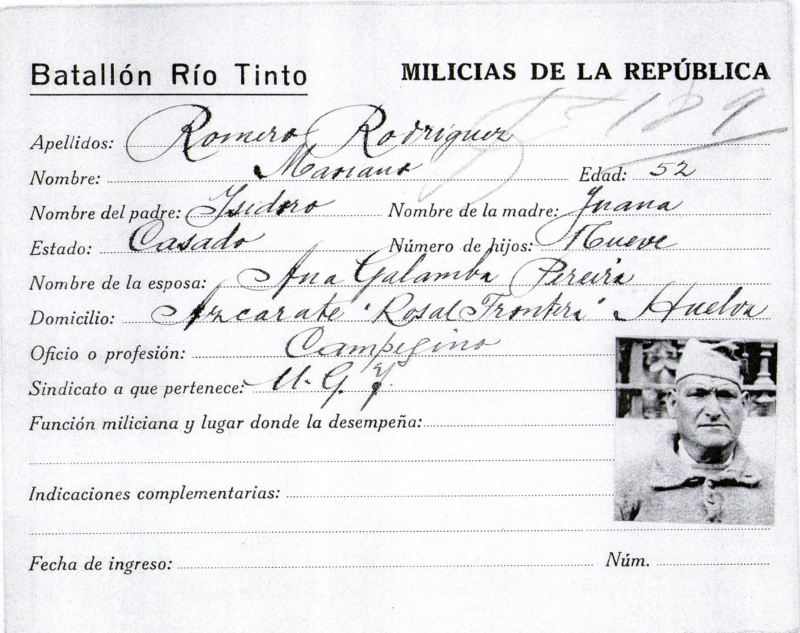 Batallón Río Tinto MILICIAS DE LA REPÚBLICA
189
Apellidos: Romero Rodriguez
Nombre: Mariano Edad: 52
Nombre del padre: Isidoro Nombre de la madre: Juana
Estado: Casado Número de hijos: Nueve
Nombre de la esposa: Ana Galamba Pereira
Domicilio: Azcarate "Rosal Frontera" Huelva
Oficio o profesión: Campesino
Sindicato a que pertenece: U.G.T.
Función miliciana y lugar donde la desempeña:
Indicaciones complementarias:
Fecha de ingreso: Núm.